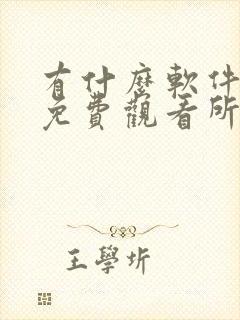 有什麼軟件
免費觀看所
王學圻